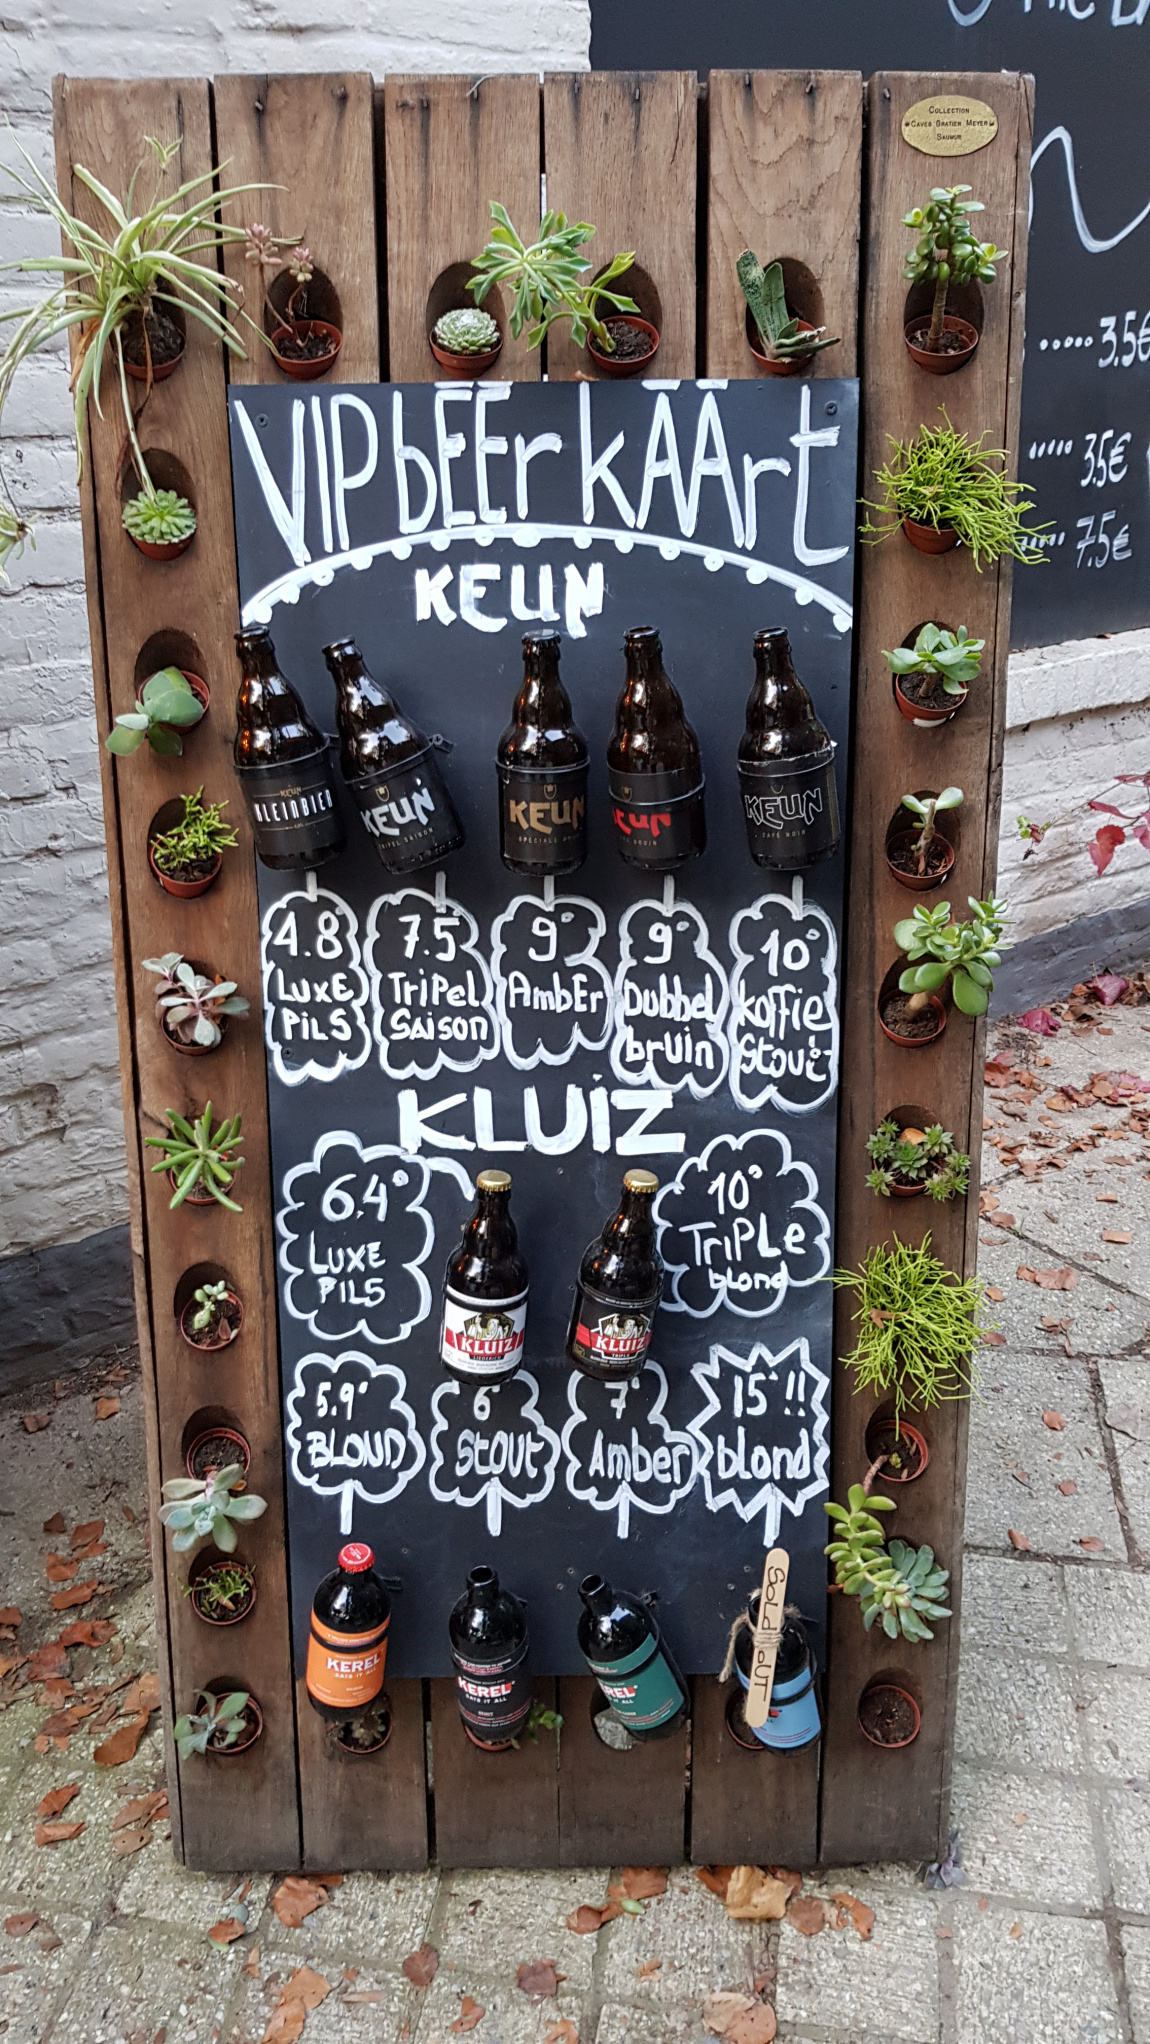 THE BA
COLLECTION
CAVES GRATIEN MEYER
SAUMUR
.....3.5€
..... 3.5€
..... 7.5€
VIP bEEr kÄÄrt
KEUN
KEUN
KLEINBIER
KEUN
TRIPEL SAISON
KEUN
SPECIALE
KEUN
BRUIN
KEUN
CAFÉ NOIR
4.8°
LuxE
PiLS
7.5°
TriPel
SAiSon
9°
AmbEr
9°
Dubbel
bruin
10°
koffie
Stout
KLUiZ
6.4°
LUXE
PILS
10°
TriPLe
blond
KLUIZ
KLUIZ
TRIPLE
5.9°
BLOND
6°
Stout
7°
Amber
15° !!
blond
KEREL
EATS IT ALL
KEREL
EATS IT ALL
STOUT
KEREL
EATS IT ALL
Sold OUT